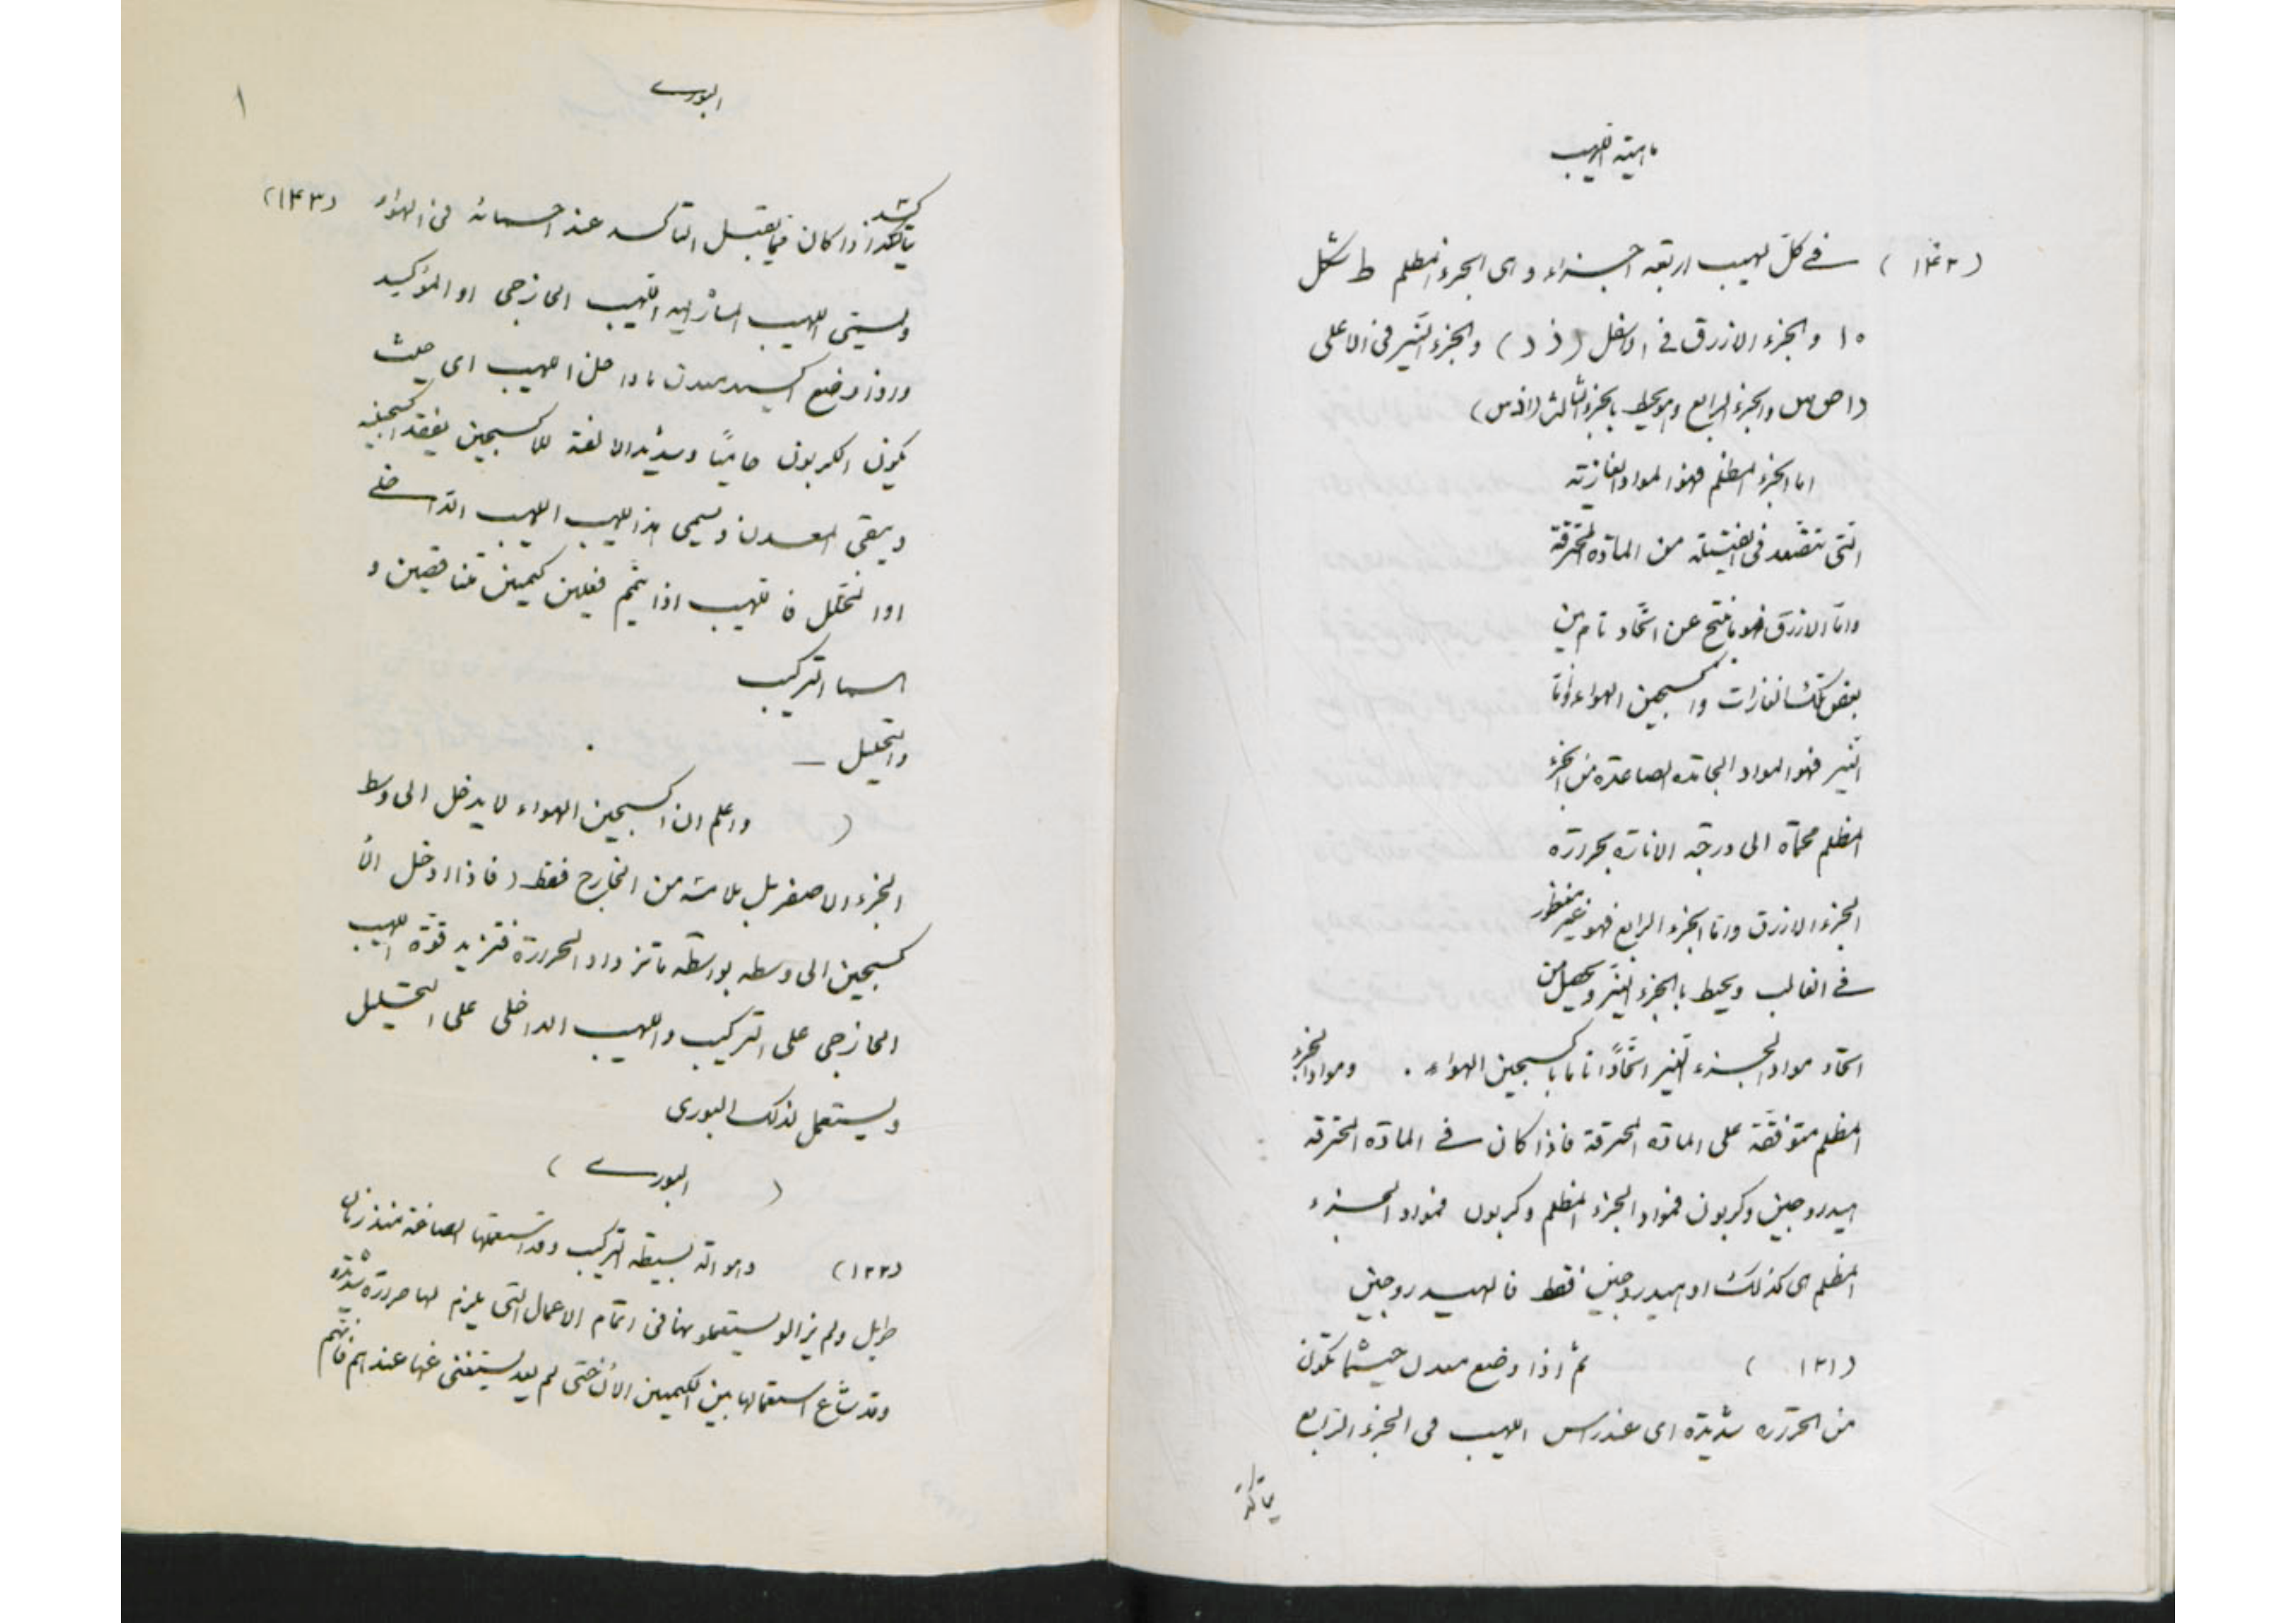 ماهیته اللهیب
(۱۴۲) فی کل لهیب اربعه اجزاء و هی الجزء المظلم ط شکل
۱۰ والجزء الازرق فی الاسفل (ذ د) والجزء النیر فی الاعلی
(ا ص س والجزء الرابع وهو یحیط بالجزء الثالث (ا ذ س)
اما الجزء المظلم فهو المواد الغازیه
التی تتصعد فی الفتیله من الماده المحترقه
واما الازرق فهو ناتج عن اتحاد تام بین
بعض تلک الغازات واکسجین الهواء واما
النیر فهو المواد الجامده الصاعده من الجزء
المظلم محماة الی درجه الاناره بحراره
الجزء الازرق واما الجزء الرابع فهو غیر منظور
فی الغالب ویحیط بالجزء النیر ویحصل من
اتحاد مواد الجزء النیر اتحاداً تاما باکسجین الهواء . ومواد الجزء
المظلم متوقفة علی الماده المحترقة فاذا کان فی المادة المحترقه
هیدروجین وکربون فمواد الجزء المظلم وکربون فمواد الجزء
المظلم هی کذلک او هیدروجین فقط فالهیدروجین
(۱۲۱) ثم اذا وضع معدن حیثما تکون
من الحراره شدیدة ای عند راس اللهیب فی الجزء الرابع
یتاکد
البوری
۱
یتاکسد اذا کان فیما یقبل التاکسد عند احمائه فی الهواء (۱۴۳)
ویسمی اللهیب المشار الیه اللهیب الخارجی او المؤکسد
واذا وضع اکسید معدن ما داخل اللهیب ای حیث
یکون الکربون حامیاً وشدید الالفة للاکسجین یفقد اکسجینه
ویبقی المعدن ویسمی هذا اللهیب اللهیب الداخلی
او المحلل فاللهیب اذا یتمم فعلین کیمیین متناقضین و
هما الترکیب
والتحلیل —
( ) واعلم ان اکسجین الهواء لا یدخل الی وسط
الجزء الاصفر بل یلامسه من الخارج فقط (فاذا ادخل الا
کسجین الی وسطه بواسطه ما تزداد الحرارة فتزید قوة اللهیب
الخارجی علی الترکیب واللهیب الداخلی علی التحلیل
ویستعمل لذلک البوری
( البوری )
(۱۲۲) وهو آلة بسیطه الترکیب وقد استعملها الصاغة منذ زمان
طویل ولم یزالو یستعملونها فی اتمام الاعمال التی یلزم لها حرارة شدیده
وقد شاع استعمالها بین الکیمیین الأن حتی لم یعد یستغنی عنها عندهم فانهم